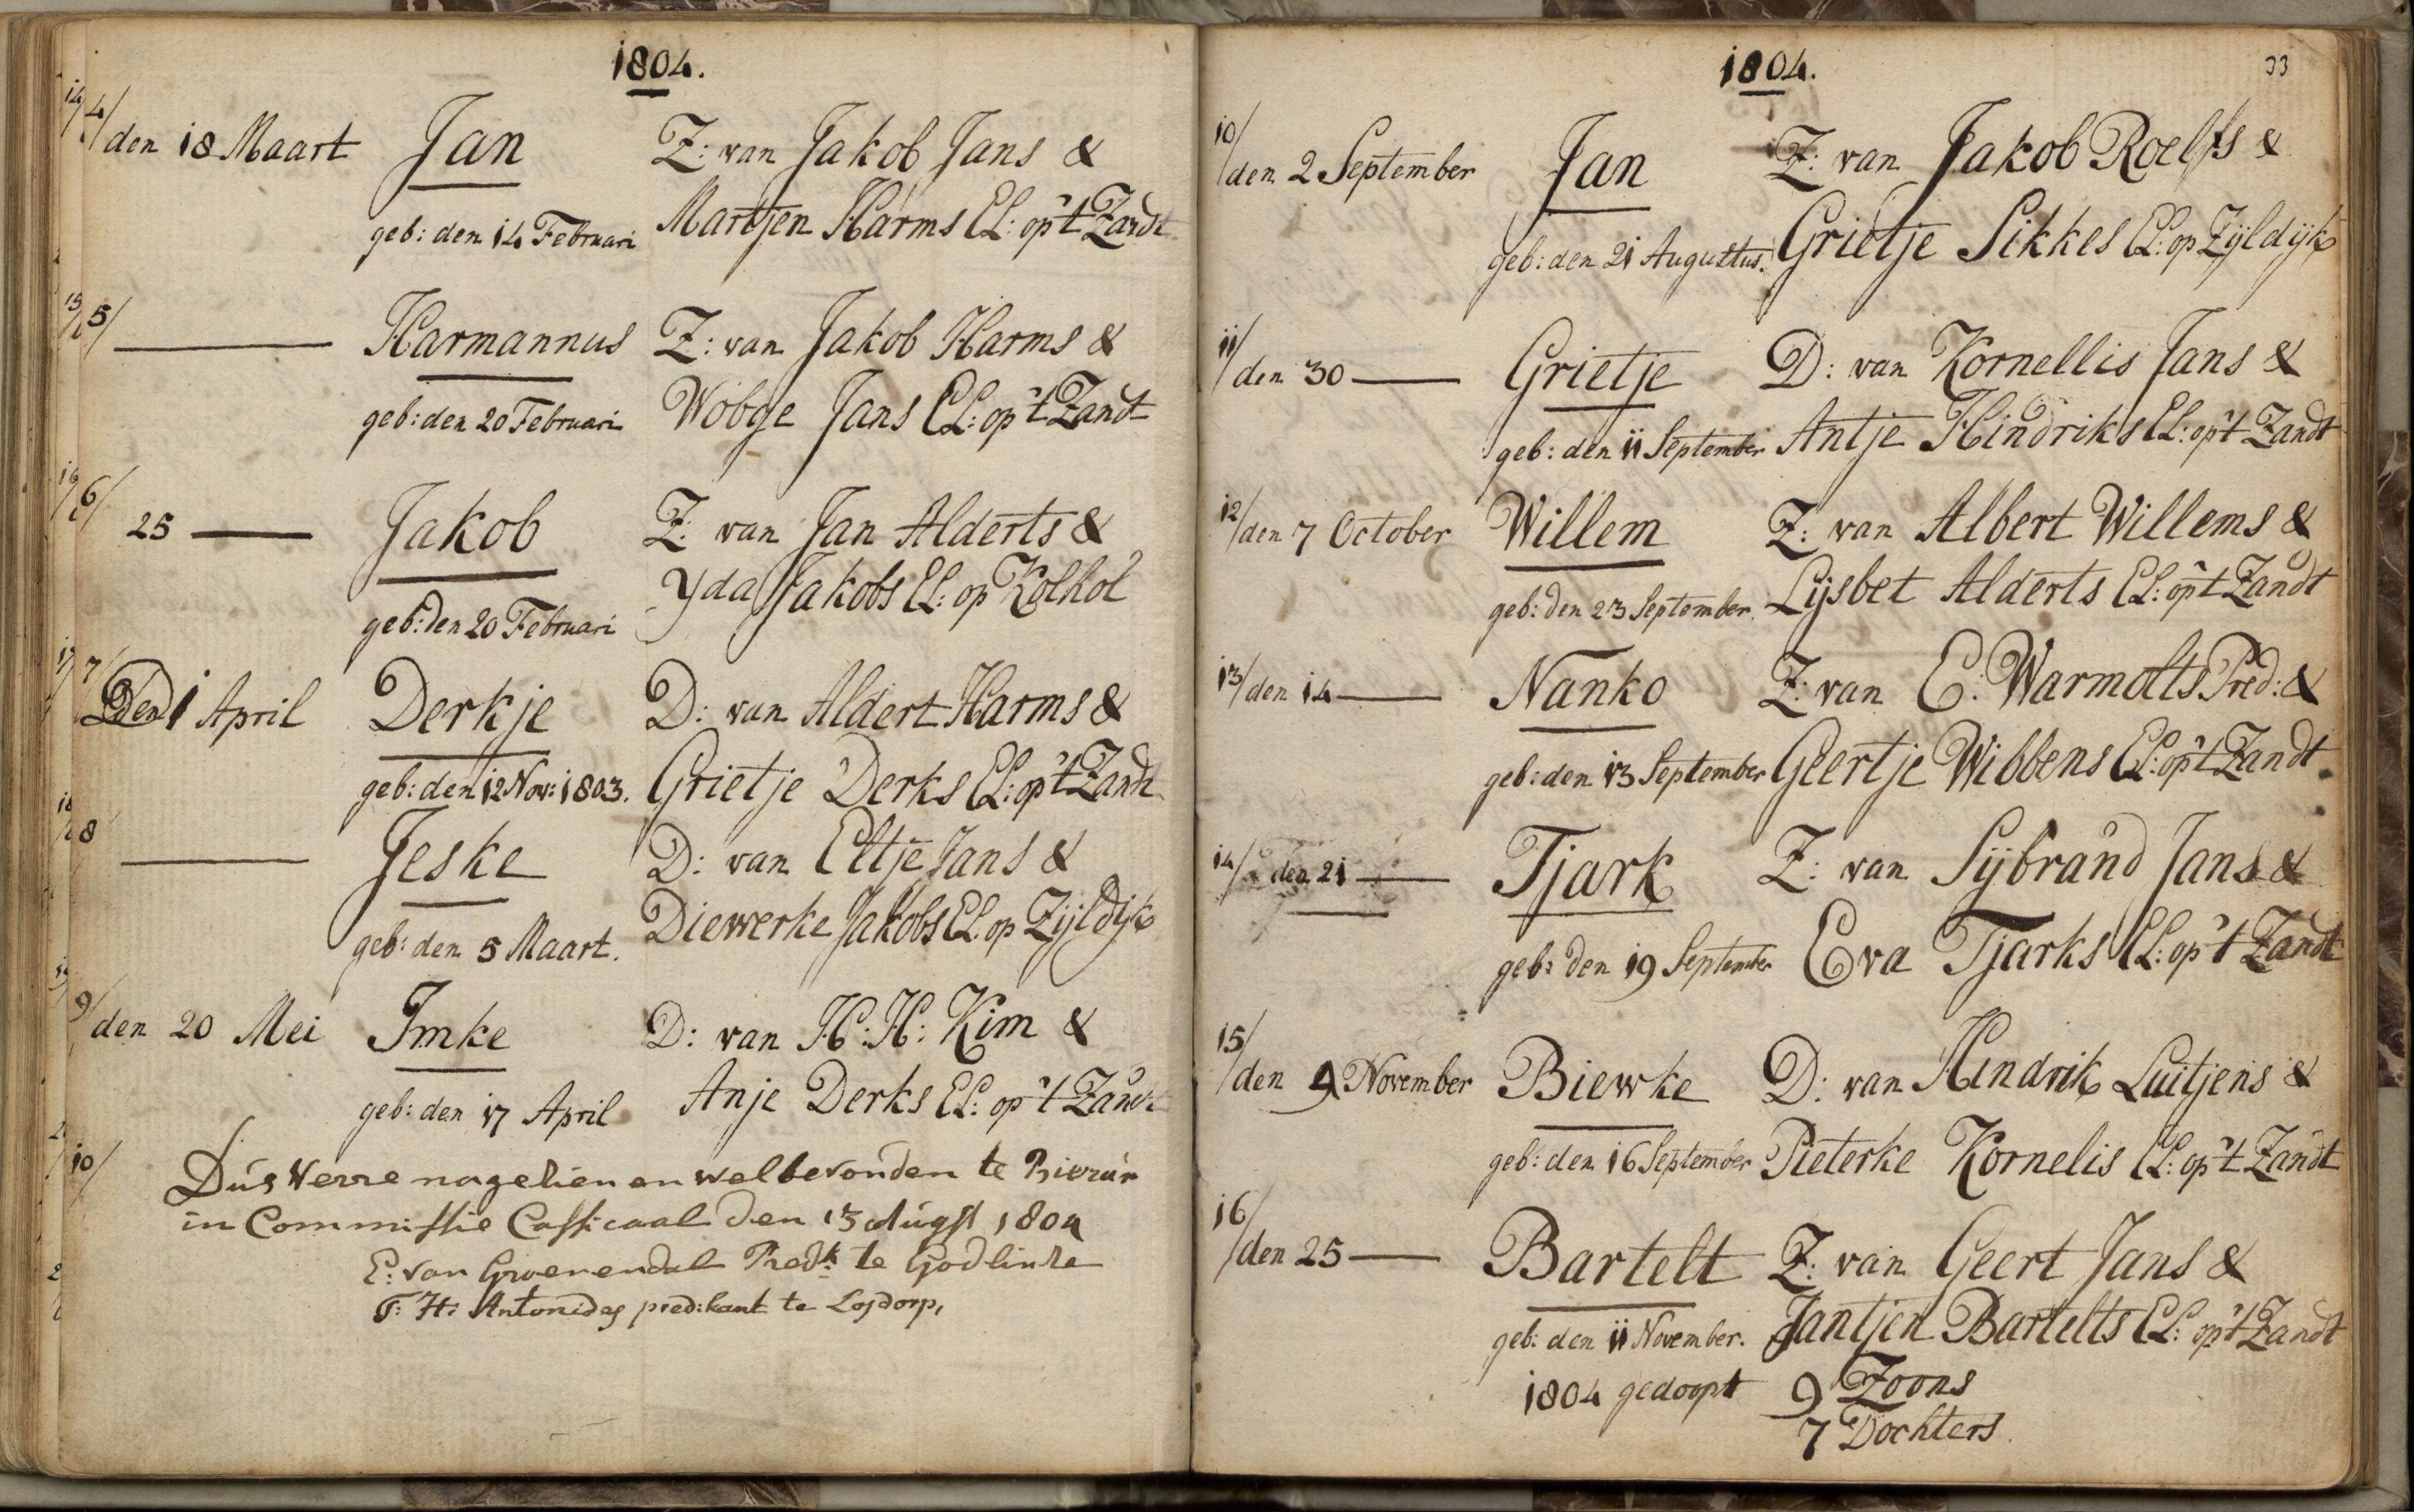 1804.
4/ den 18 Maart Jan Z: van Jakob Jans &
geb: den 14 Februari Martjen Harms EL: op 't Zandt
5/ Harmannus Z: van Jakob Harms &
geb: den 20 Februari Wobge Jans EL: op 't Zandt
6/ 25 Jakob Z: van Jan Alderts &
geb: den 20 Februari Yda Jakobs EL: op Kolhol
7/ Den 1 April Derkje D: van Aldert Harms &
geb: den 12 Nov: 1803. Grietje Derks EL: op 't Zandt
8 Jeske D: van Eltje Jans &
geb: den 5 Maart. Diewerke Jakobs EL: op Zijldijk
9/ den 20 Mei Imke D: van H: H: Kim &
geb: den 17 April Anje Derks EL: op 't Zandt
10/
Dus verre nagezien en wel bevonden te Bierum
in Commissie Classicaal den 13 Augst 1804
E: van Groenendal Predk te Godlinze
T: H: Antonides predikant te Losdorp,
1804. 33
10/ den 2 September Jan Z: van Jakob Roelfs &
geb: den 21 Augustus. Grietje Sikkes EL: op Zijldijk
11/ den 30 Grietje D: van Kornellis Jans &
geb: den 11 September Antje Hindriks EL: op 't Zandt
12/ den 7 October Willem Z: van Albert Willems &
geb: den 23 September. Lijsbet Alderts EL: op 't Zandt
13/ den 14 Nanko Z: van E: Warmolts Pred: &
geb: den 13 September Geertje Wibbens EL: op 't Zandt
14/ den 21 Tjark Z: van Sijbrand Jans &
geb: den 19 September Eva Tjarks EL: op 't Zandt
15/ den 9 November Biewke D: van Hindrik Luitjens &
geb: den 16 September Pieterke Kornelis EL: op 't Zandt
16/ den 25 Bartelt Z: van Geert Jans &
geb: den 11 November. Jantjen Bartelts EL: op 't Zandt
1804 gedoopt 9 Zoons
7 Dochters.